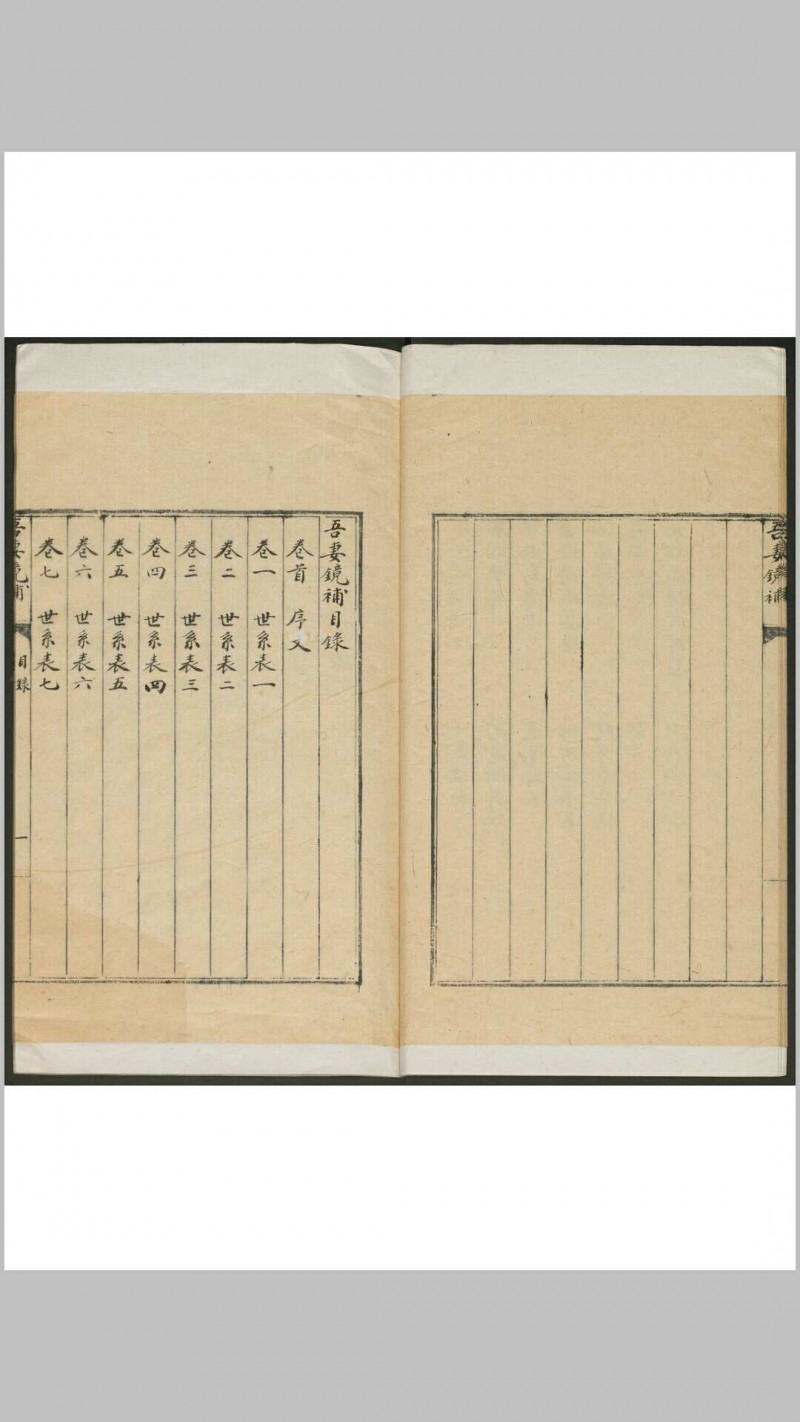 吾妻鏡補
吾妻鏡補目録
卷首 序文
卷一 世系表一
卷二 世系表二
卷三 世系表三
卷四 世系表四
卷五 世系表五
卷六 世系表六
卷七 世系表七
吾妻鏡補 目録 一